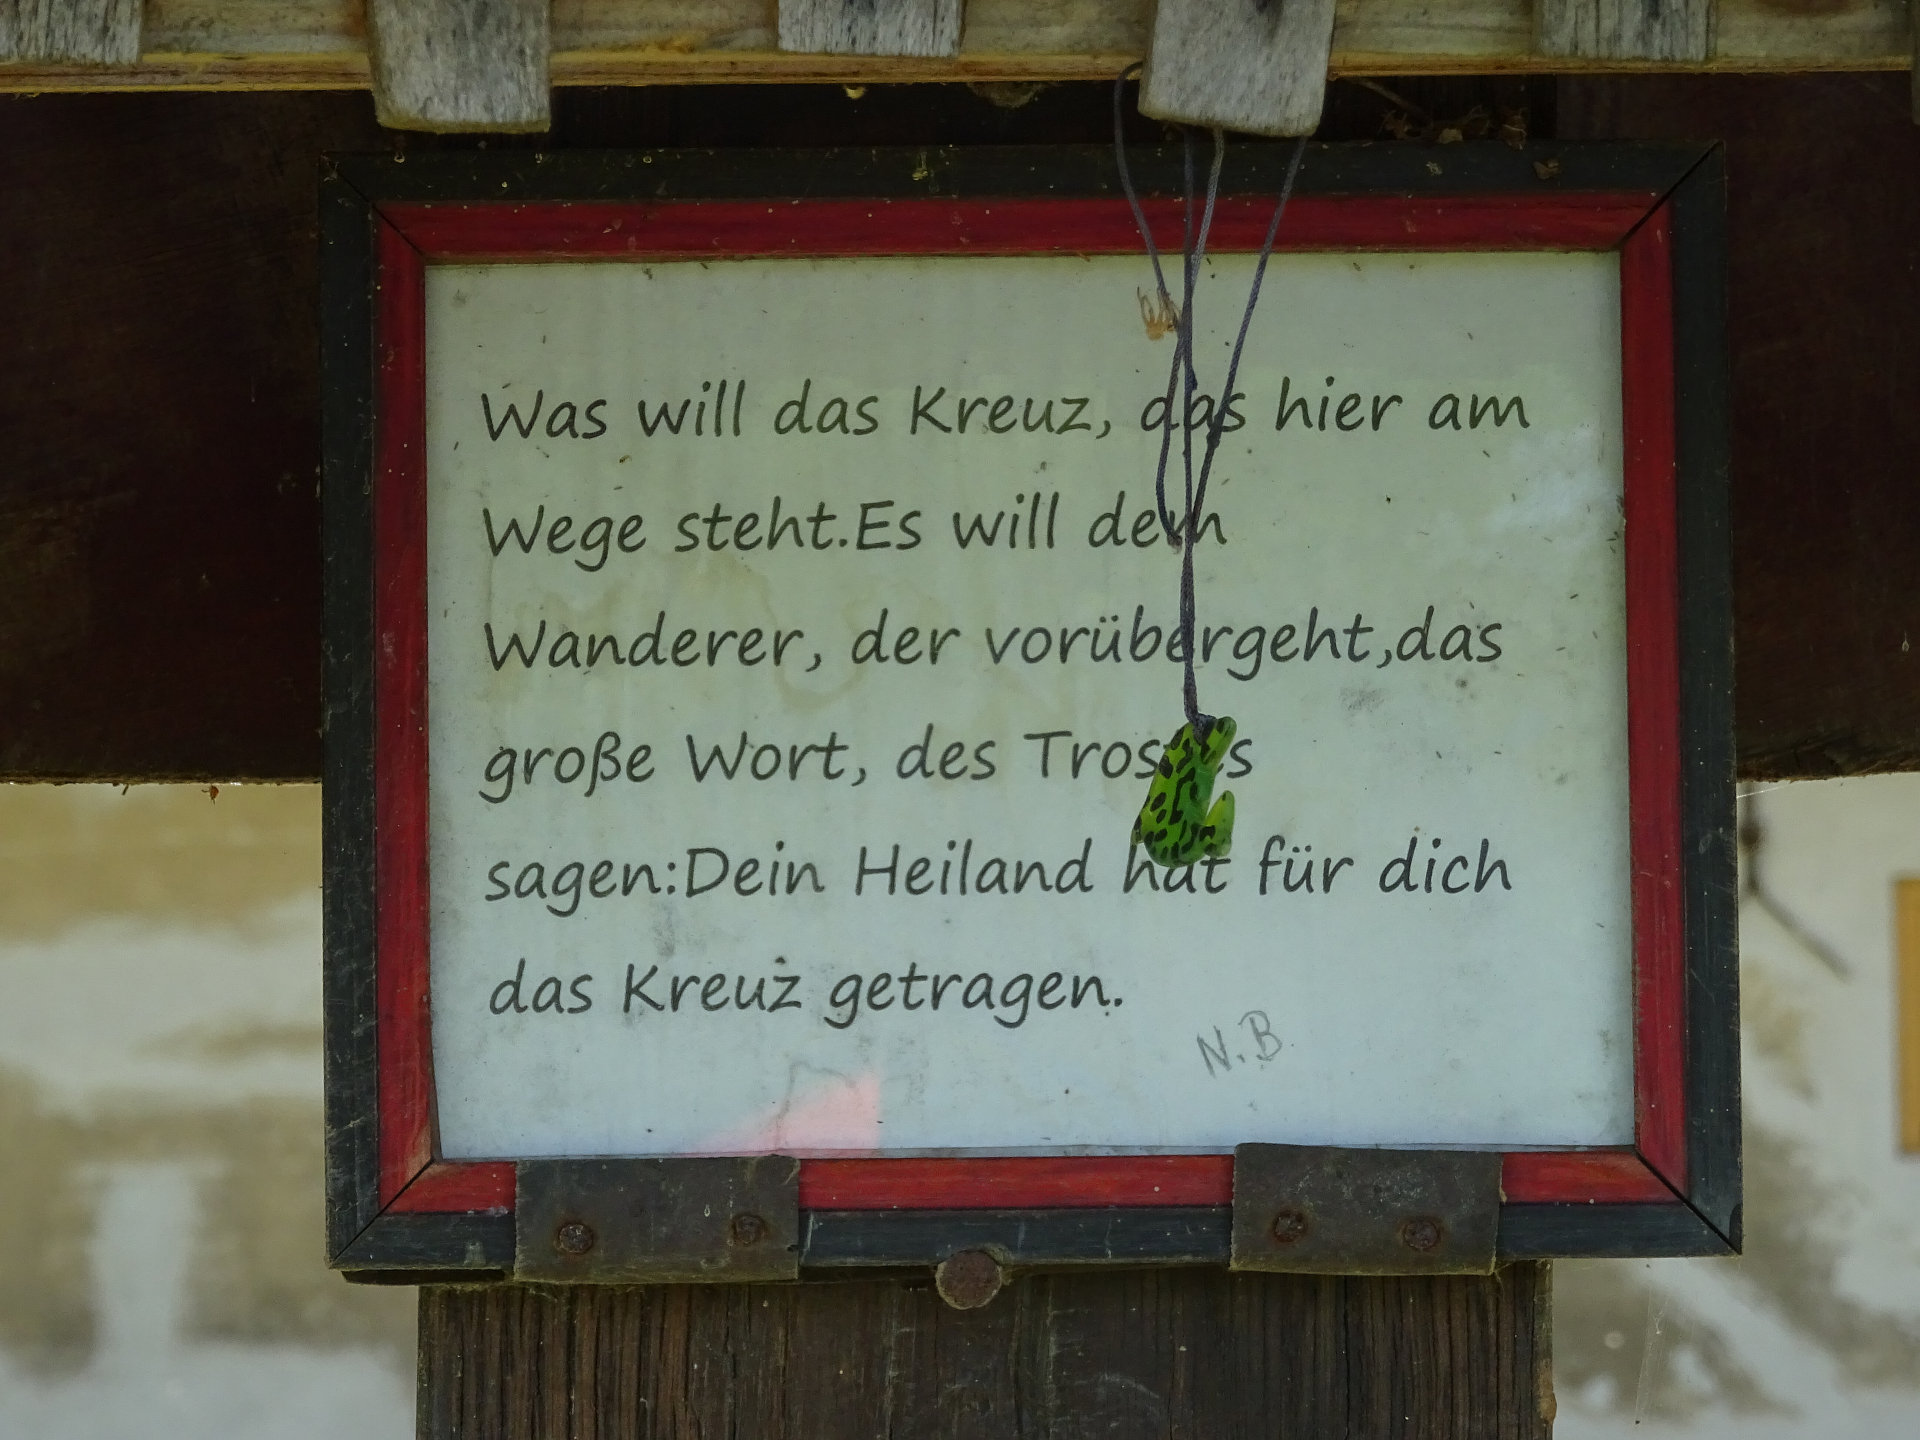 Was will das Kreuz, das hier am
Wege steht.Es will dem
Wanderer, der vorübergeht,das
große Wort, des Trostes
sagen:Dein Heiland hat für dich
das Kreuz getragen.
N.B.